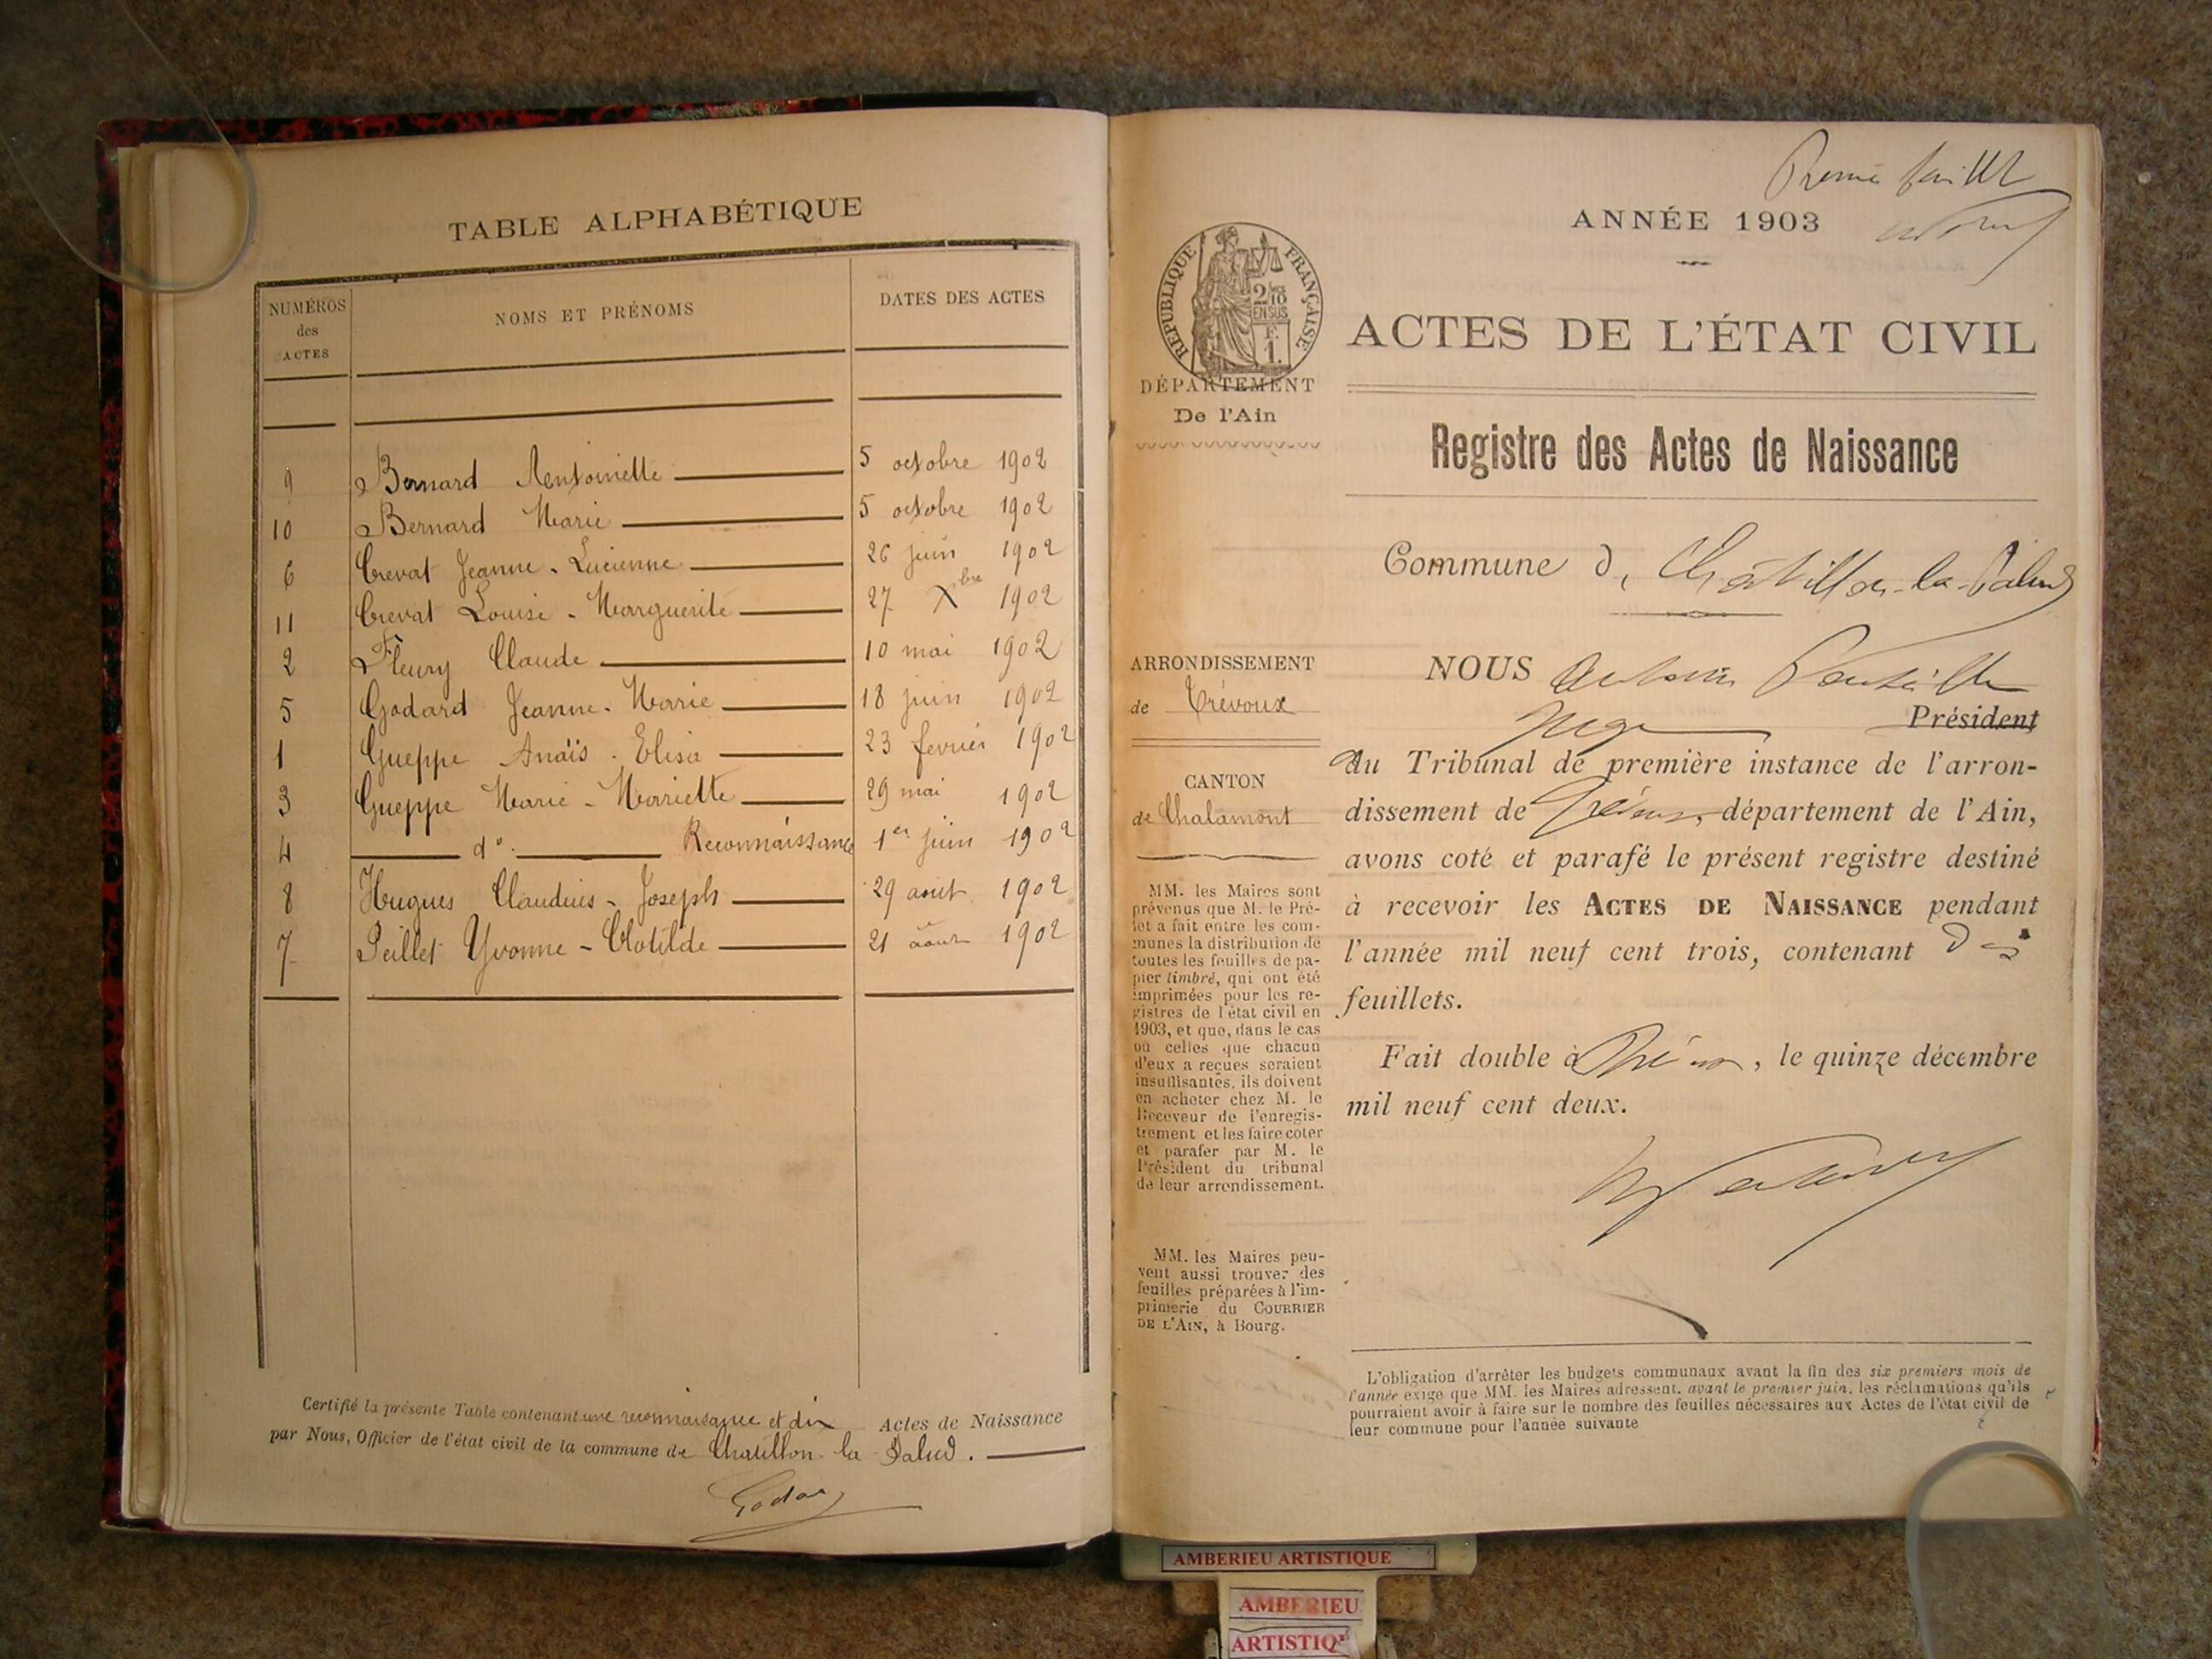 TABLE ALPHABÉTIQUE
NUMÉROS des ACTES
NOMS ET PRÉNOMS
DATES DES ACTES
9 Bernard Antoinette 5 octobre 1902
10 Bernard Marie 5 octobre 1902
6 Crevat Jeanne-Lucienne 26 juin 1902
11 Crevat Louise-Marguerite 27 Xbre 1902
2 Fleury Claude 10 mai 1902
5 Godard Jeanne-Marie 18 juin 1902
1 Gueppe Anaïs-Elisa 23 fevrier 1902
3 Gueppe Marie-Mariette 29 mai 1902
4 do. Reconnaissance 1er juin 1902
8 Hugues Claudius-Joseph 29 aout 1902
7 Peillet Yvonne-Clotilde 21 août 1902
Certifié la présente Table contenant une reconnaissance et dix Actes de Naissance
par Nous, Officier de l'état civil de la commune de Chatillon-la-Palud.
Godar
Premier feuillet
ANNÉE 1903
RÉPUBLIQUE FRANÇAISE
2/10 EN SUS
F. 1.
DÉPARTEMENT
De l'Ain
ACTES DE L'ÉTAT CIVIL
Registre des Actes de Naissance
Commune de Châtillon-la-Palud
ARRONDISSEMENT
de Trévoux
CANTON
de Chalamont
MM. les Maires sont
prévenus que M. le Pré-
fet a fait entre les com-
munes la distribution de
toutes les feuilles de pa-
pier timbré, qui ont été
imprimées pour les re-
gistres de l'état civil en
1903, et que, dans le cas
où celles que chacun
d'eux a reçues seraient
insuffisantes, ils doivent
en acheter chez M. le
Receveur de l'enregis-
trement et les faire coter
et parafer par M. le
Président du tribunal
de leur arrondissement.
MM. les Maires peu-
vent aussi trouver des
feuilles préparées à l'im-
primerie du COURRIER
DE L'AIN, à Bourg.
NOUS Antoine
Juge Président
du Tribunal de première instance de l'arron-
dissement de Trévoux, département de l'Ain,
avons coté et parafé le présent registre destiné
à recevoir les ACTES DE NAISSANCE pendant
l'année mil neuf cent trois, contenant dix
feuillets.
Fait double à Trévoux, le quinze décembre
mil neuf cent deux.
L'obligation d'arrêter les budgets communaux avant la fin des six premiers mois de
l'année exige que MM. les Maires adressent, avant le premier juin, les réclamations qu'ils
pourraient avoir à faire sur le nombre des feuilles nécessaires aux Actes de l'état civil de
leur commune pour l'année suivante
AMBERIEU ARTISTIQUE
AMBERIEU
ARTISTIQ